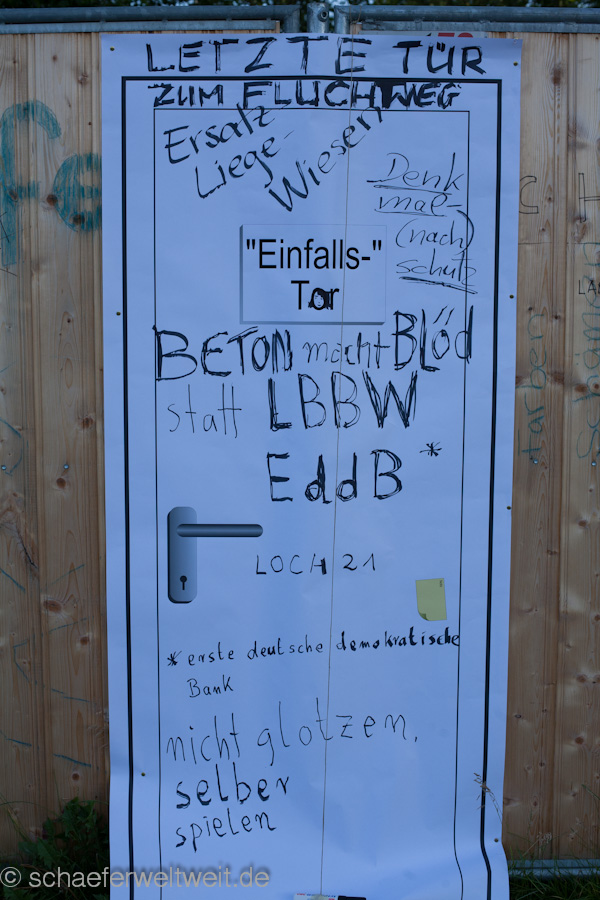 LETZTE TÜR
ZUM FLUCHTWEG
Ersatz
Liege-
Wiesen
Denk
mal-
(nach)
schutz
"Einfalls-"
Tor
BETON macht BLÖd
statt LBBW
EddB *
LOCH 21
* erste deutsche demokratische
Bank
nicht glotzen,
selber
spielen
© schaeferweltweit.de